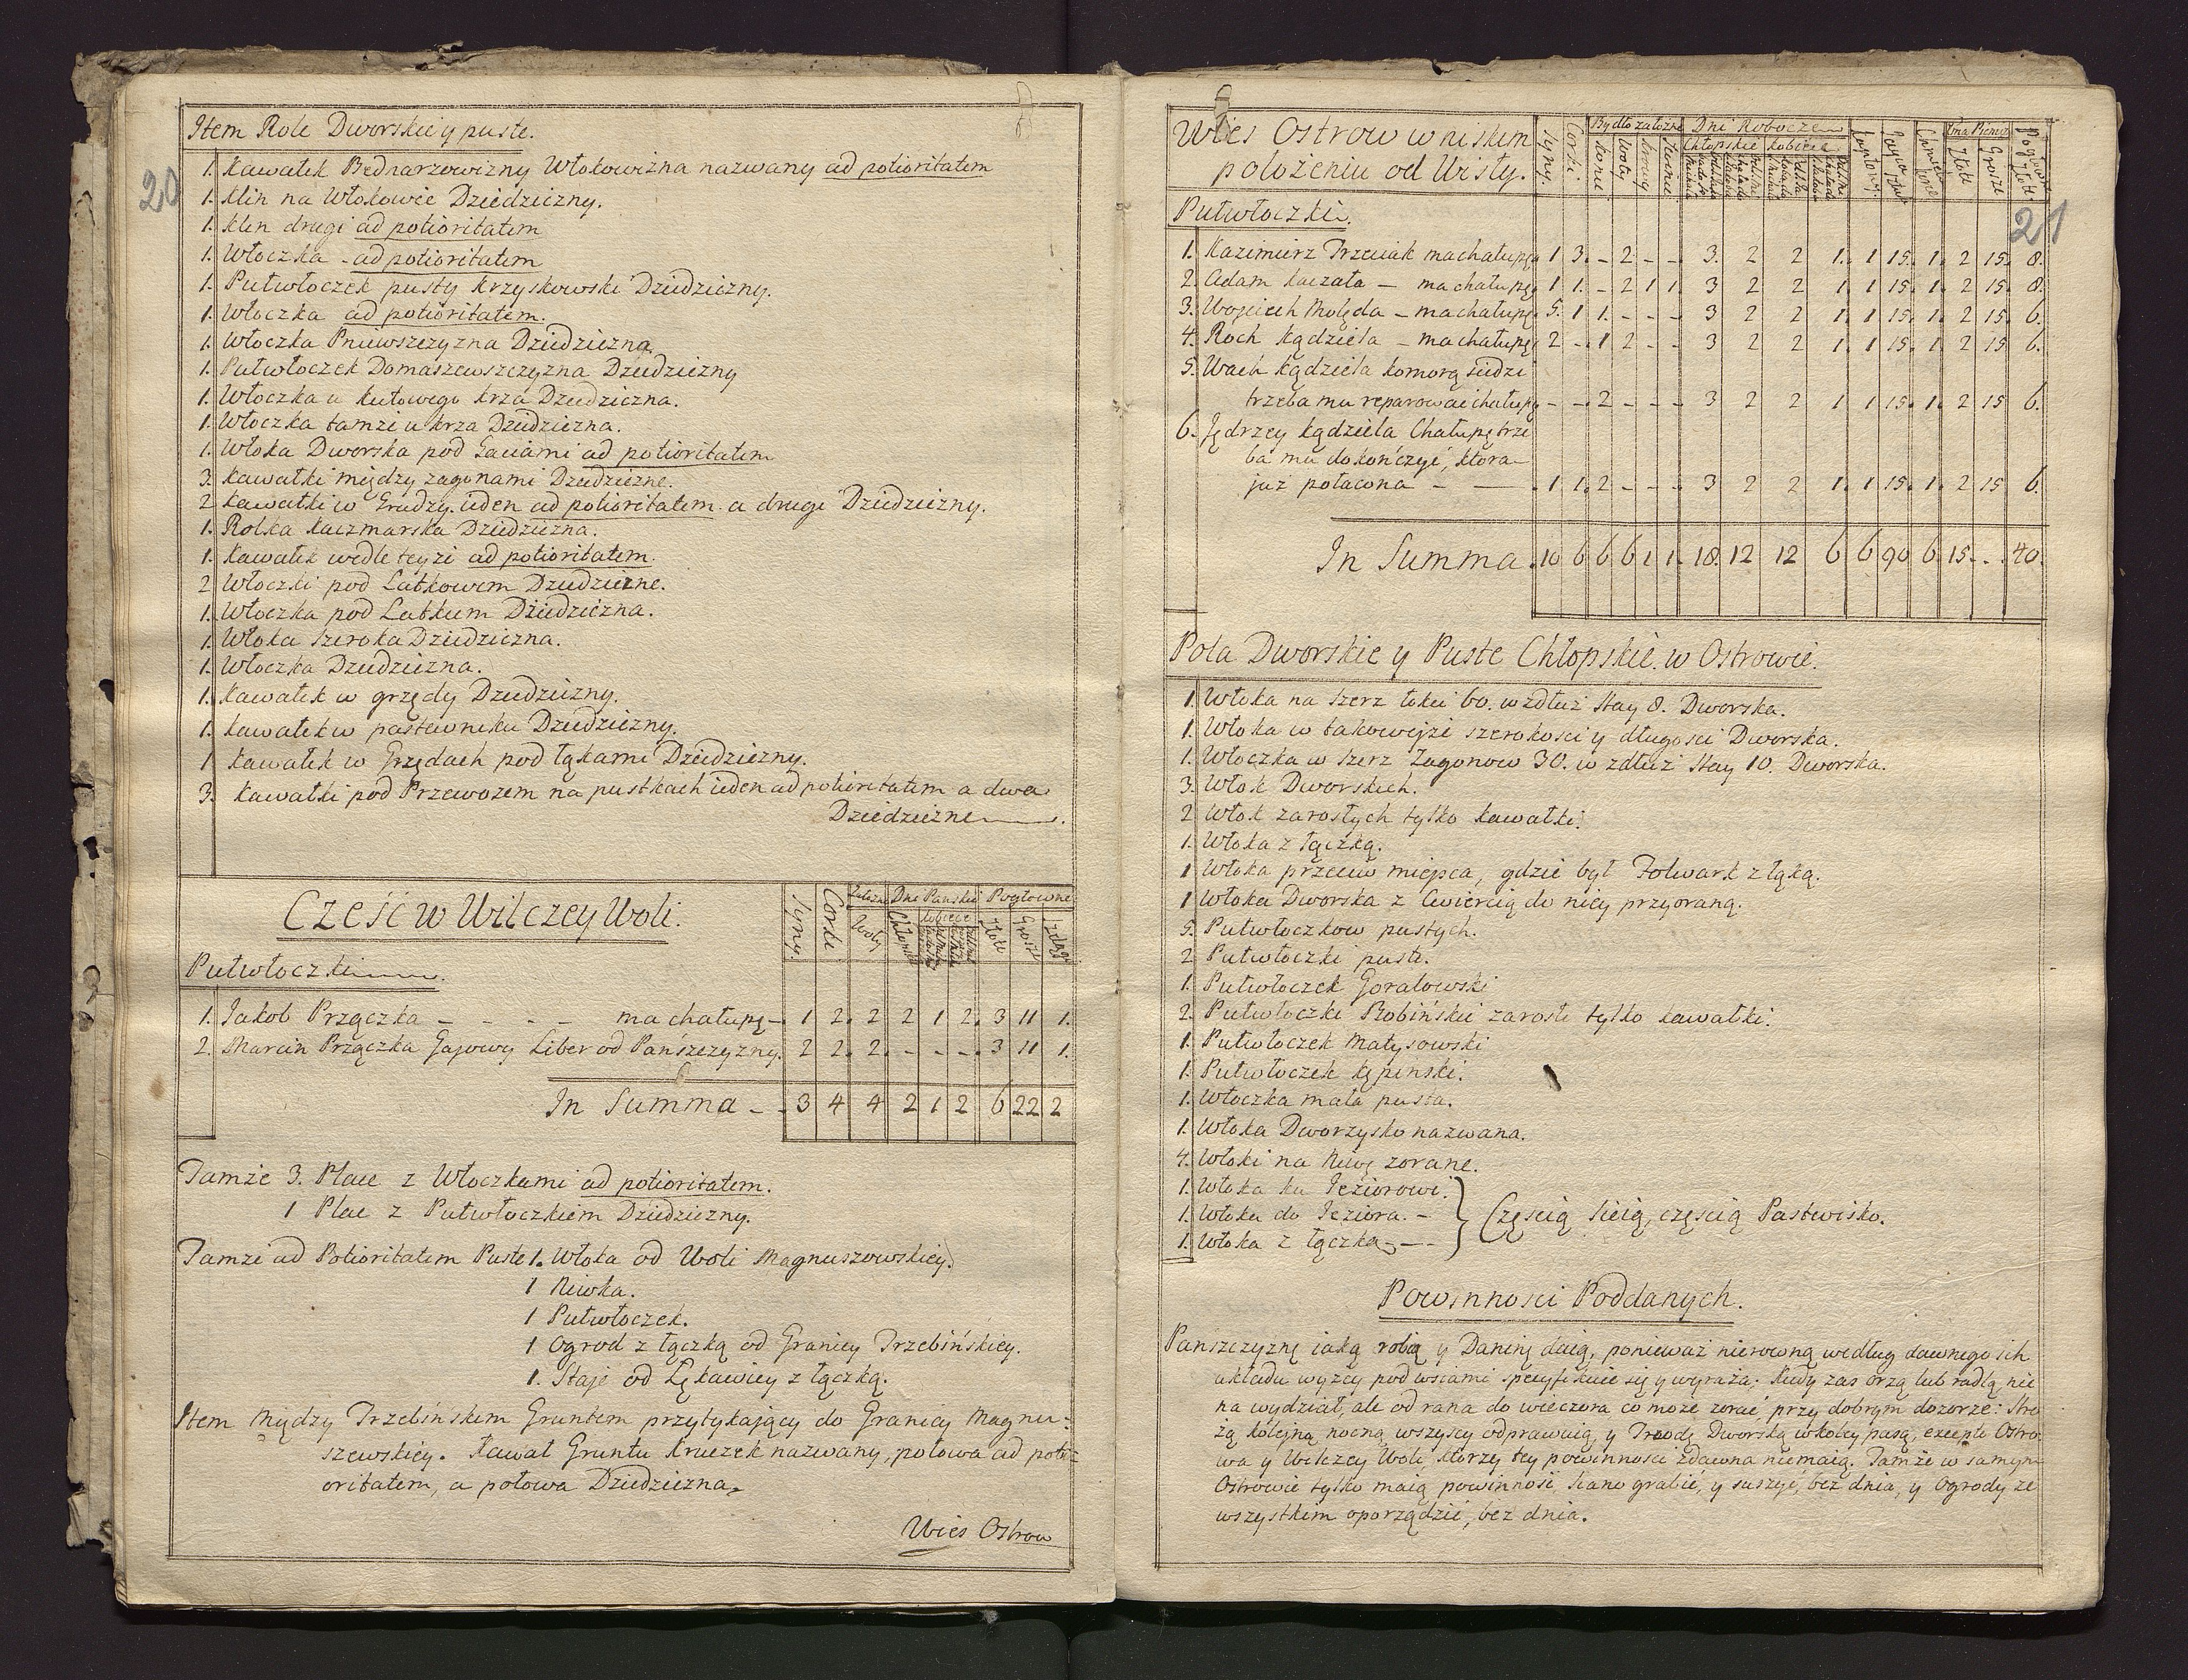 20
Item Role Dworskie y puste.
1. Kawałek Bednarzowizny Włokowizna nazwany ad potioritatem
1. Klin na Włokowie Dziedziczny.
1. Klin drugi ad potioritatem
1. Włoczka - ad potioritatem
1. Pułwłoczek pusty Krzyskowski Dziedziczny.
1. Włoczka ad potioritatem.
1. Włoczka Pniewszczyzna Dziedziczna
1. Pułwłoczek Domaszewszczyzna Dziedziczny
1. Włoczka u Kutowego krza Dziedziczna.
1. Włoczka tamże u krza Dziedziczna.
1. Włoka Dworska pod Gaciami ad potioritatem
3. Kawałki między zagonami Dziedziczne.
2 Kawałki w Grudzy. ieden ad potioritatem. a drugi Dziedziczny.
1. Rolka Kaczmarska Dziedziczna.
1. Kawałek wedle teyże ad potioritatem.
2 Włoczki pod Latkowem Dziedziczne.
1. Włoczka pod Latkiem Dziedziczna.
1. Włoka szeroka Dziedziczna.
1. Włoczka Dziedziczna.
1. Kawałek w grzędy Dziedziczny.
1. Kawałek w pastewniku Dziedziczny.
1 Kawałek w Grzędach pod łąkami Dziedziczny.
3. Kawałki pod Przewozem na pustkach ieden ad potioritatem a dwa
Dziedziczne
Cześć w Wilczey Woli.
Syny. Corki. Załoźne Dni Pańskie Pogłowne
Woły Chłopskie Kobiece Złote Grosze Szelągi
Pułwłoczki
1. Jakob Prządzka - - - - ma chałupę - 1 2. 2 2 1 2. 3 11 1.
2. Marcin Prządzka Gajowy Liber od Pańszczyzny. 2 2. 2. - - - 3 11 1.
In Summa - 3 4 4 2 1 2 6 22 2
Tamże 3. Place z Włoczkami ad potioritatem.
1 Plac z Pułwłoczkiem Dziedziczny.
Tamże ad Potioritatem Puste 1. Włoka od Woli Magnuszowskiey.
1 Niwka.
1 Pułwłoczek.
1 Ogrod z łączką od Granicy Trzebińskiey.
1. Staje od Łękawicy z łączką.
Item Między Trzebińskim Gruntem przytykający do Granicy Magnu-
szewskiey. Kawał Gruntu Kruczek nazwany, połowa ad poti-
oritatem, a połowa Dziedziczna.
Wies Ostrow
21
Wies Ostrow w niskim
położeniu od Wisły.
Syny. Corki. Bydło załoźne Dni Robocze
Konie Woły Krowy Chłopskie Kobiece Złote Grosze
Pułwłoczki.
1. Kazimierz Trzeciak ma chałupę 1 3. - 2 - - 3. 2 2 1. 1 15. 1. 2 15. 8.
2. Adam Kaczała - ma chałupę 1 1. - 2 1 1. 3 2 2 1. 1 15. 1. 2 15. 8.
3. Woyciech Molęda - ma chałupę 5. 1 1. - - - 3 2 2 1. 1 15. 1. 2 15. 6.
4. Roch Kądziela - ma chałupę 2 - 1 2 - - 3 2 2 1. 1 15. 1. 2 15 6.
5. Wach Kądziela komorą siedzi
trzeba mu reparować chałupę - - 2 - - - 3 2 2 1 1 15. 1. 2 15 6.
6. Jędrzey Kądziela Chałupę trze
ba mu dokończyć, ktora
już połacona - 1 1. 2 - - - 3 2 2 1. 1 15. 1. 2 15 6.
In Summa. 10 6 6 6 1 1. 18. 12 12 6 6 90 6. 15 - . 40.
Pola Dworskie y Puste Chłopskie. w Ostrowie.
1. Włoka na szerz łokci 60. wzdłuż Stay 8. Dworska.
1. Włoka w takoweyże szerokosci y długosci Dworska.
1. Włoczka w szerz Zagonow 30. w zdłuż Stay 10. Dworska.
3. Włok Dworskich.
2 Włok zarosłych tylko kawałki.
1. Włoka z łączką.
1 Włoka przeciw mieysca, gdzie był Folwark z łąką.
1 Włoka Dworska z Cwiercią do niey przyoraną.
5. Pułwłoczkow pustych.
2 Pułwłoczki puste.
1. Pułwłoczek Goratowski
2. Pułwłoczki Robińskie zarosłe tylko kawałki.
1. Pułwłoczek Matysowski
1. Pułwłoczek Kępinski.
1. Włoczka mała pusta.
1. Włoka Dworzysko nazwana.
4. Włoki na Niwę zorane.
1. Włoka ku Jeziorowi.
1. Włoka do Jeziora. -
1. Włoka z łączką - -
Częscią sieią, częscią Pastwisko.
Powinnosci Poddanych.
Pańszczyznę iaką robią y Daninę daią, ponieważ nierowną według dawnego ich
układu wyżey pod wsiami specyfikuie się y wyraża; Kiedy zas orzą lub radlą nie
na wydział, ale od rana do wieczora co może zorać, przy dobrym dozorze: Stro
żą koleyną nocną wszyscy odprawuią, y Trzodę Dworską wkoley pasą, excepto Ostro-
wa y Wilczey Woli, ktorzy tey powinnosci zdawna niemaią. Tamże w samym
Ostrowie tylko maią powinność, siano grabić, y suszyć, bez dnia, y Ogrody ze
wszystkim oporządzić, bez dnia.